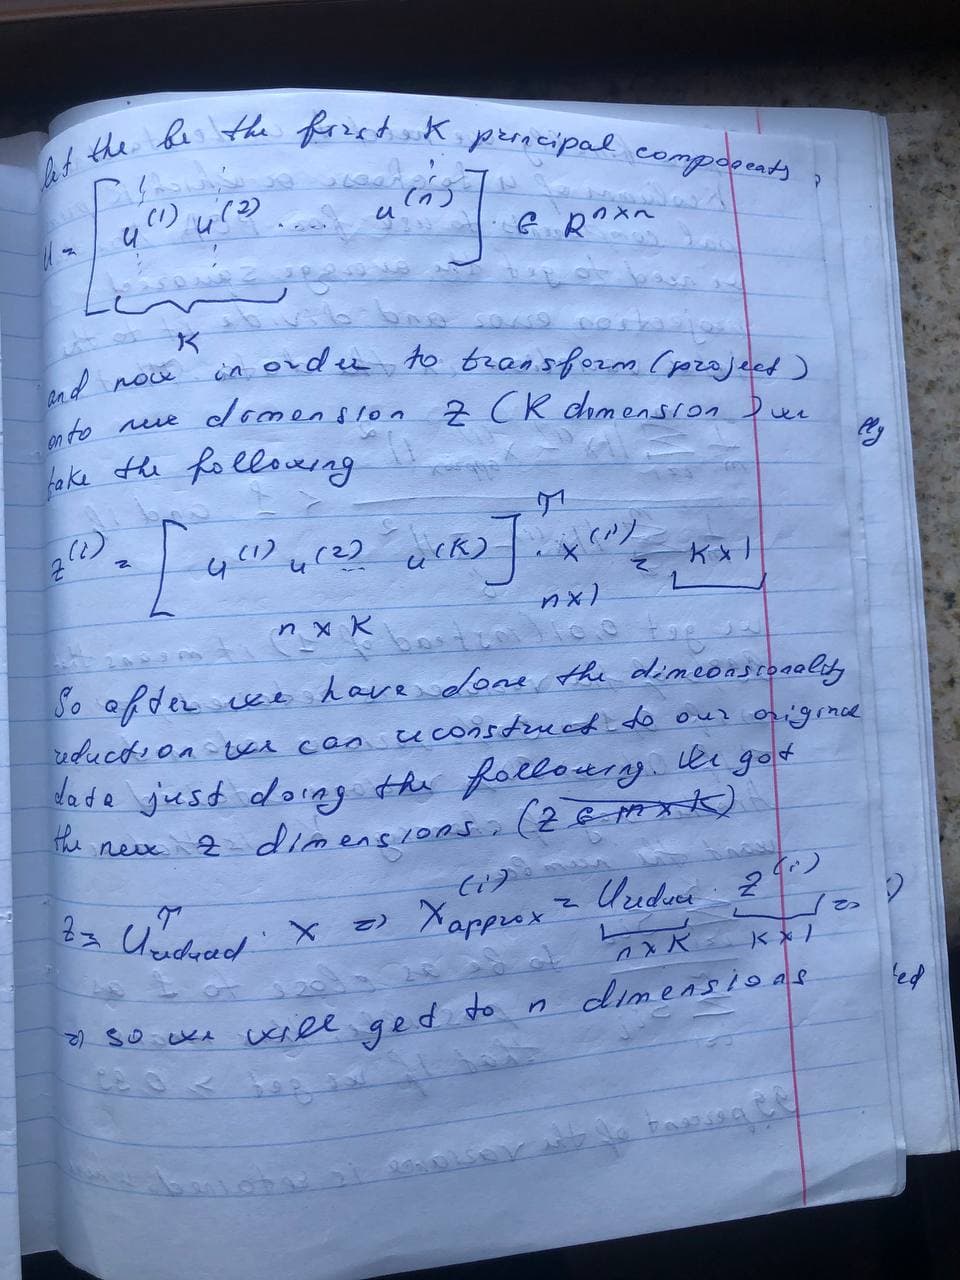 let the be the first K principal components,
U = [ u(1) u(2) .... u(n) ] ∈ R n×n
K
and now in order to transform (project)
onto new dimension z (K dimension) we
take the following
z(i) = [ u(1) u(2) ... u(K) ]T · x(i) = K x 1
n x K n x 1
So after we have done the dimensionality
reduction we can reconstruct to our original
data just doing the following. We got
the new z dimensions. (z ∈ m x K)
z = UTreduced · x => x(i)approx = Ureduce · z(i) =>
n x K K x 1
=> so we will get to n dimensions
lly
)
ed